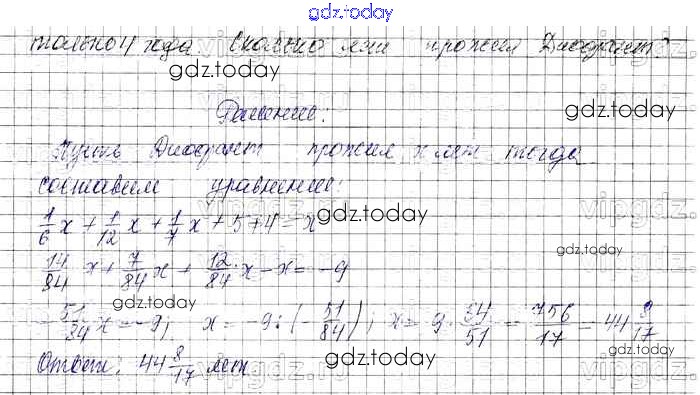 gdz.today
только 4 года. Сколько лет прожил Диофант?
gdz.today
gdz.today
Решение:
Пусть Диофант прожил x лет тогда
составим уравнение:
1/6 x + 1/12 x + 1/7 x + 5 + 4 = x
gdz.today
14/84 x + 7/84 x + 12/84 x - x = -9
gdz.today
-51/84 x = -9; x = -9 : (-51/84); x = 9 · 84/51 = 756/17 = 44 8/17
gdz.today
gdz.today
Ответ: 44 8/17 лет
gdz.today
gdz.today